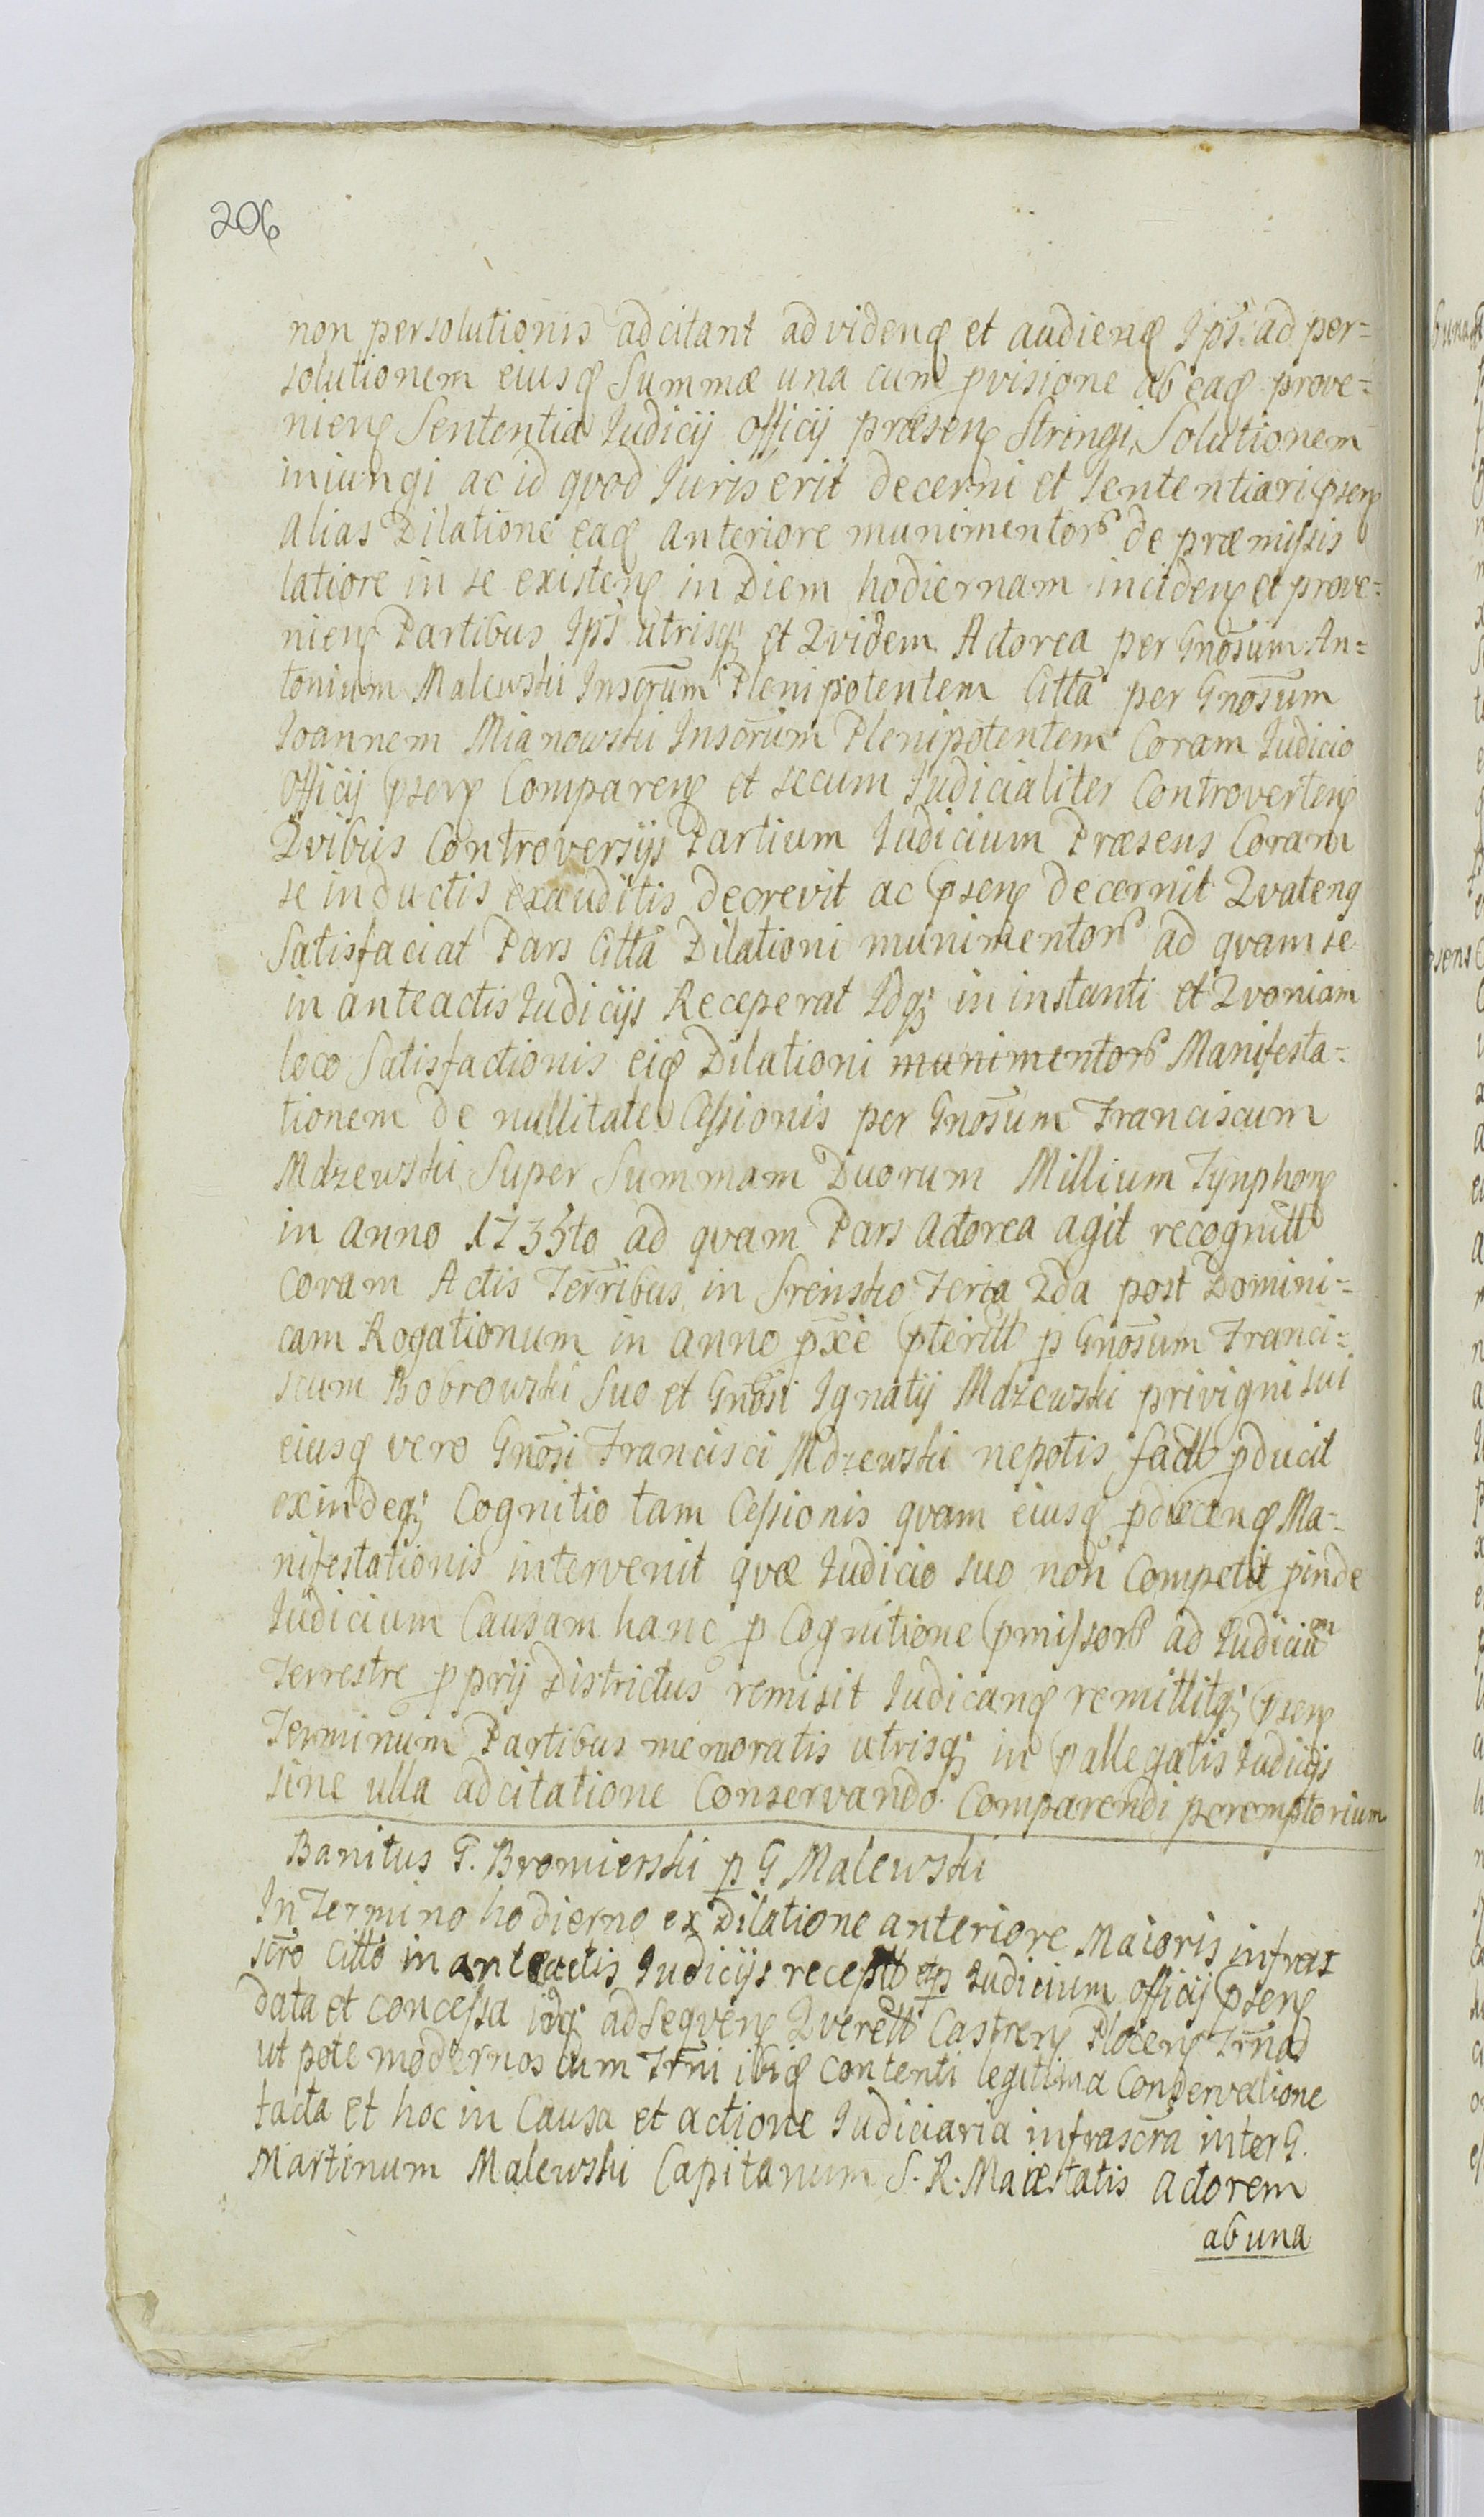 206
non persolutionis adcitant ad videnę et audienę Ips. ad per=
solutionem eiusę Summæ una cum pvisione ab eaę prove=
nienę Sententia Iudicij officij præsenę Stringi, Solutionem
iniungi ac id qvod Iuris erit decerni et sententiari psenę
alias Dilatione eaę anteriore munimentorƺ de præmissis
latiore in se existenę in Diem hodiernam incidenę et prove=
nienę Partibus Ips utrisqꝫ et Qvidem Actorea per Gnosum An=
tonium Malewski Inscrum Plenipotentem Citta per Gnosum
Ioannem Mianowski Inscrum Plenipotentem Coram Iudicio
officij psenę Comparenę et secum Iudicialiter Controvertenę
Qvibus Controversijs Partium Iudicium Præsens Coram
se inductis exauditis decrevit ac psenę decernit Qvatenq
Satisfaciat Pars Citta Dilationi munimentorƺ ad qvam se
in anteactis Iudicijs Receperat Idqꝫ in instanti et Qvoniam
loco Satisfactionis eię Dilationi munimentorƺ Manifesta=
tionem de nullitate Cessionis per Gnosum Franciscum
Mdzewski Super Summam Duorum Millium Tynphonę
in anno 1735to ad qvam Pars Actorea agit recognitt
coram Actis Terribus in Srensko Feria 2da post Domini=
cam Rogationum in anno pxe pteritt p Gnosum Franci=
scum Bobrowski Suo et Gnosi Ignatij Mdzewski privigni sui
eiusę vero Gnosi Francisci Mdzewski nepotis factt pducit
exindeqꝫ Cognitio tam Cessionis qvam eiusę pducenę Ma=
nifestationis intervenit qvæ Iudicio suo non Competit pinde
Iudicium Causam hanc p Cognitione pmissorƺ ad Iudicium
Terrestre pprij Districtus remisit Iudicanę remittitqꝫ psenę
Terminum Partibus memoratis utrisqꝫ in pallegatis Iudicijs
sine ulla adcitatione Conservando Comparendi peremptorium
Banitus G. Bromierski p G Malewski
In Termino hodierno ex Dilatione anteriore Maioris infras
scro citto in anteactis Iudicijs receptt etp Iudicium officij psenę
data et concessa idqꝫ ad seqvenę Qverett Castrenę Plocenę Trnad
ut pote modernos cum Trni ibię contenti legitima Conservatione
tacta et hoc in Causa et actione Iudiciaria infrascra inter G.
Martinum Malewski Capitanum S. R. Maiestatis Actorem
ab una